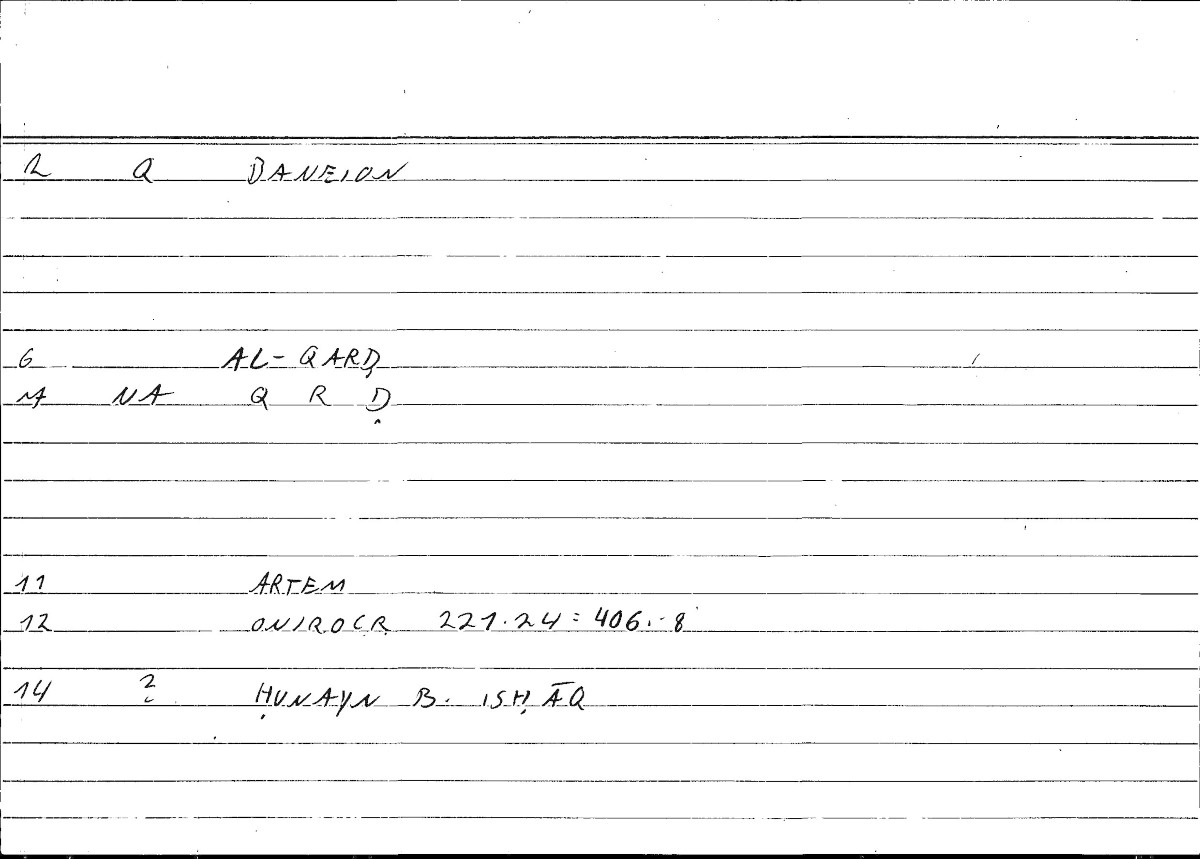 2 Q DANEION
6 AL-QARḌ
7 NA Q R Ḍ
11 ARTEM
12 ONIROCR 221.24 = 406.-8
14 ? ḤUNAYN B. ISḤĀQ